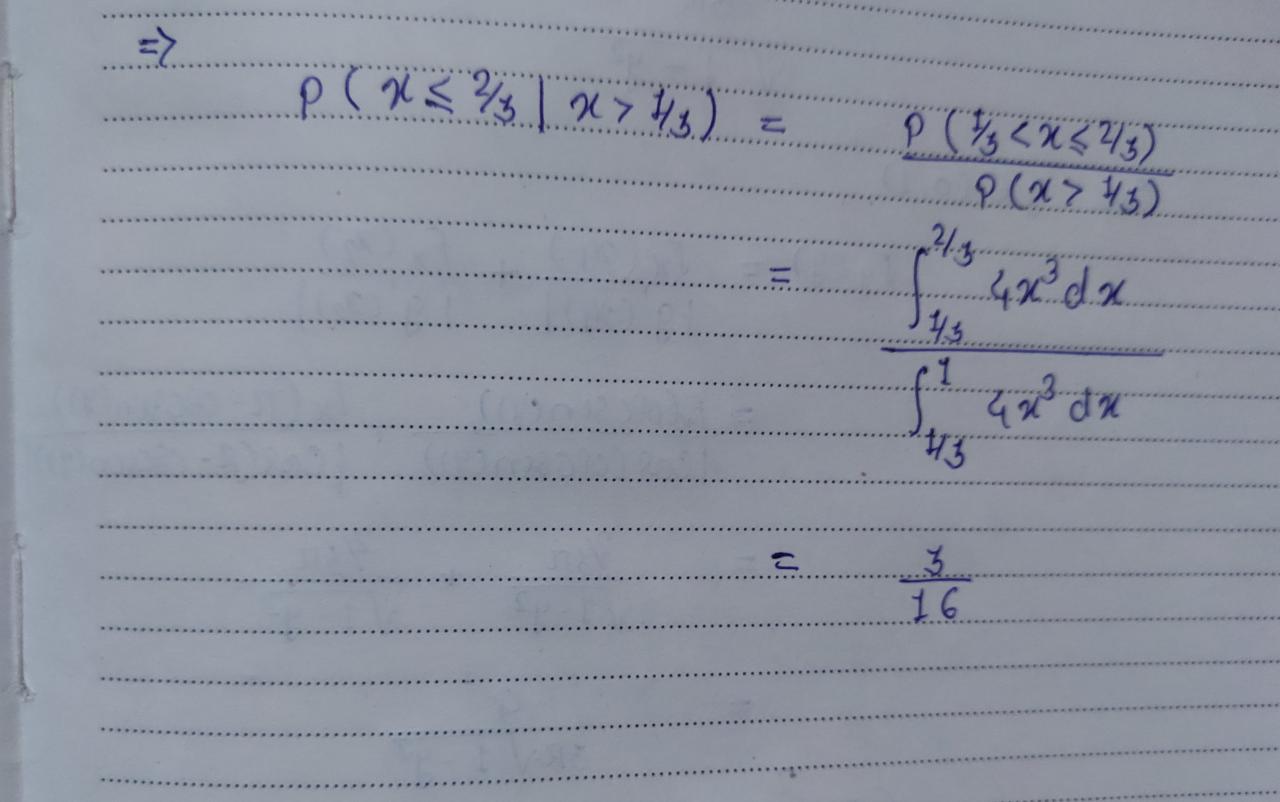 =>
P ( x ≤ 2/3 | x > 1/3 ) = P ( 1/3 < x ≤ 2/3 ) / P ( x > 1/3 )
= ∫_{1/3}^{2/3} 4x³ dx / ∫_{1/3}^{1} 4x³ dx
= 3/16